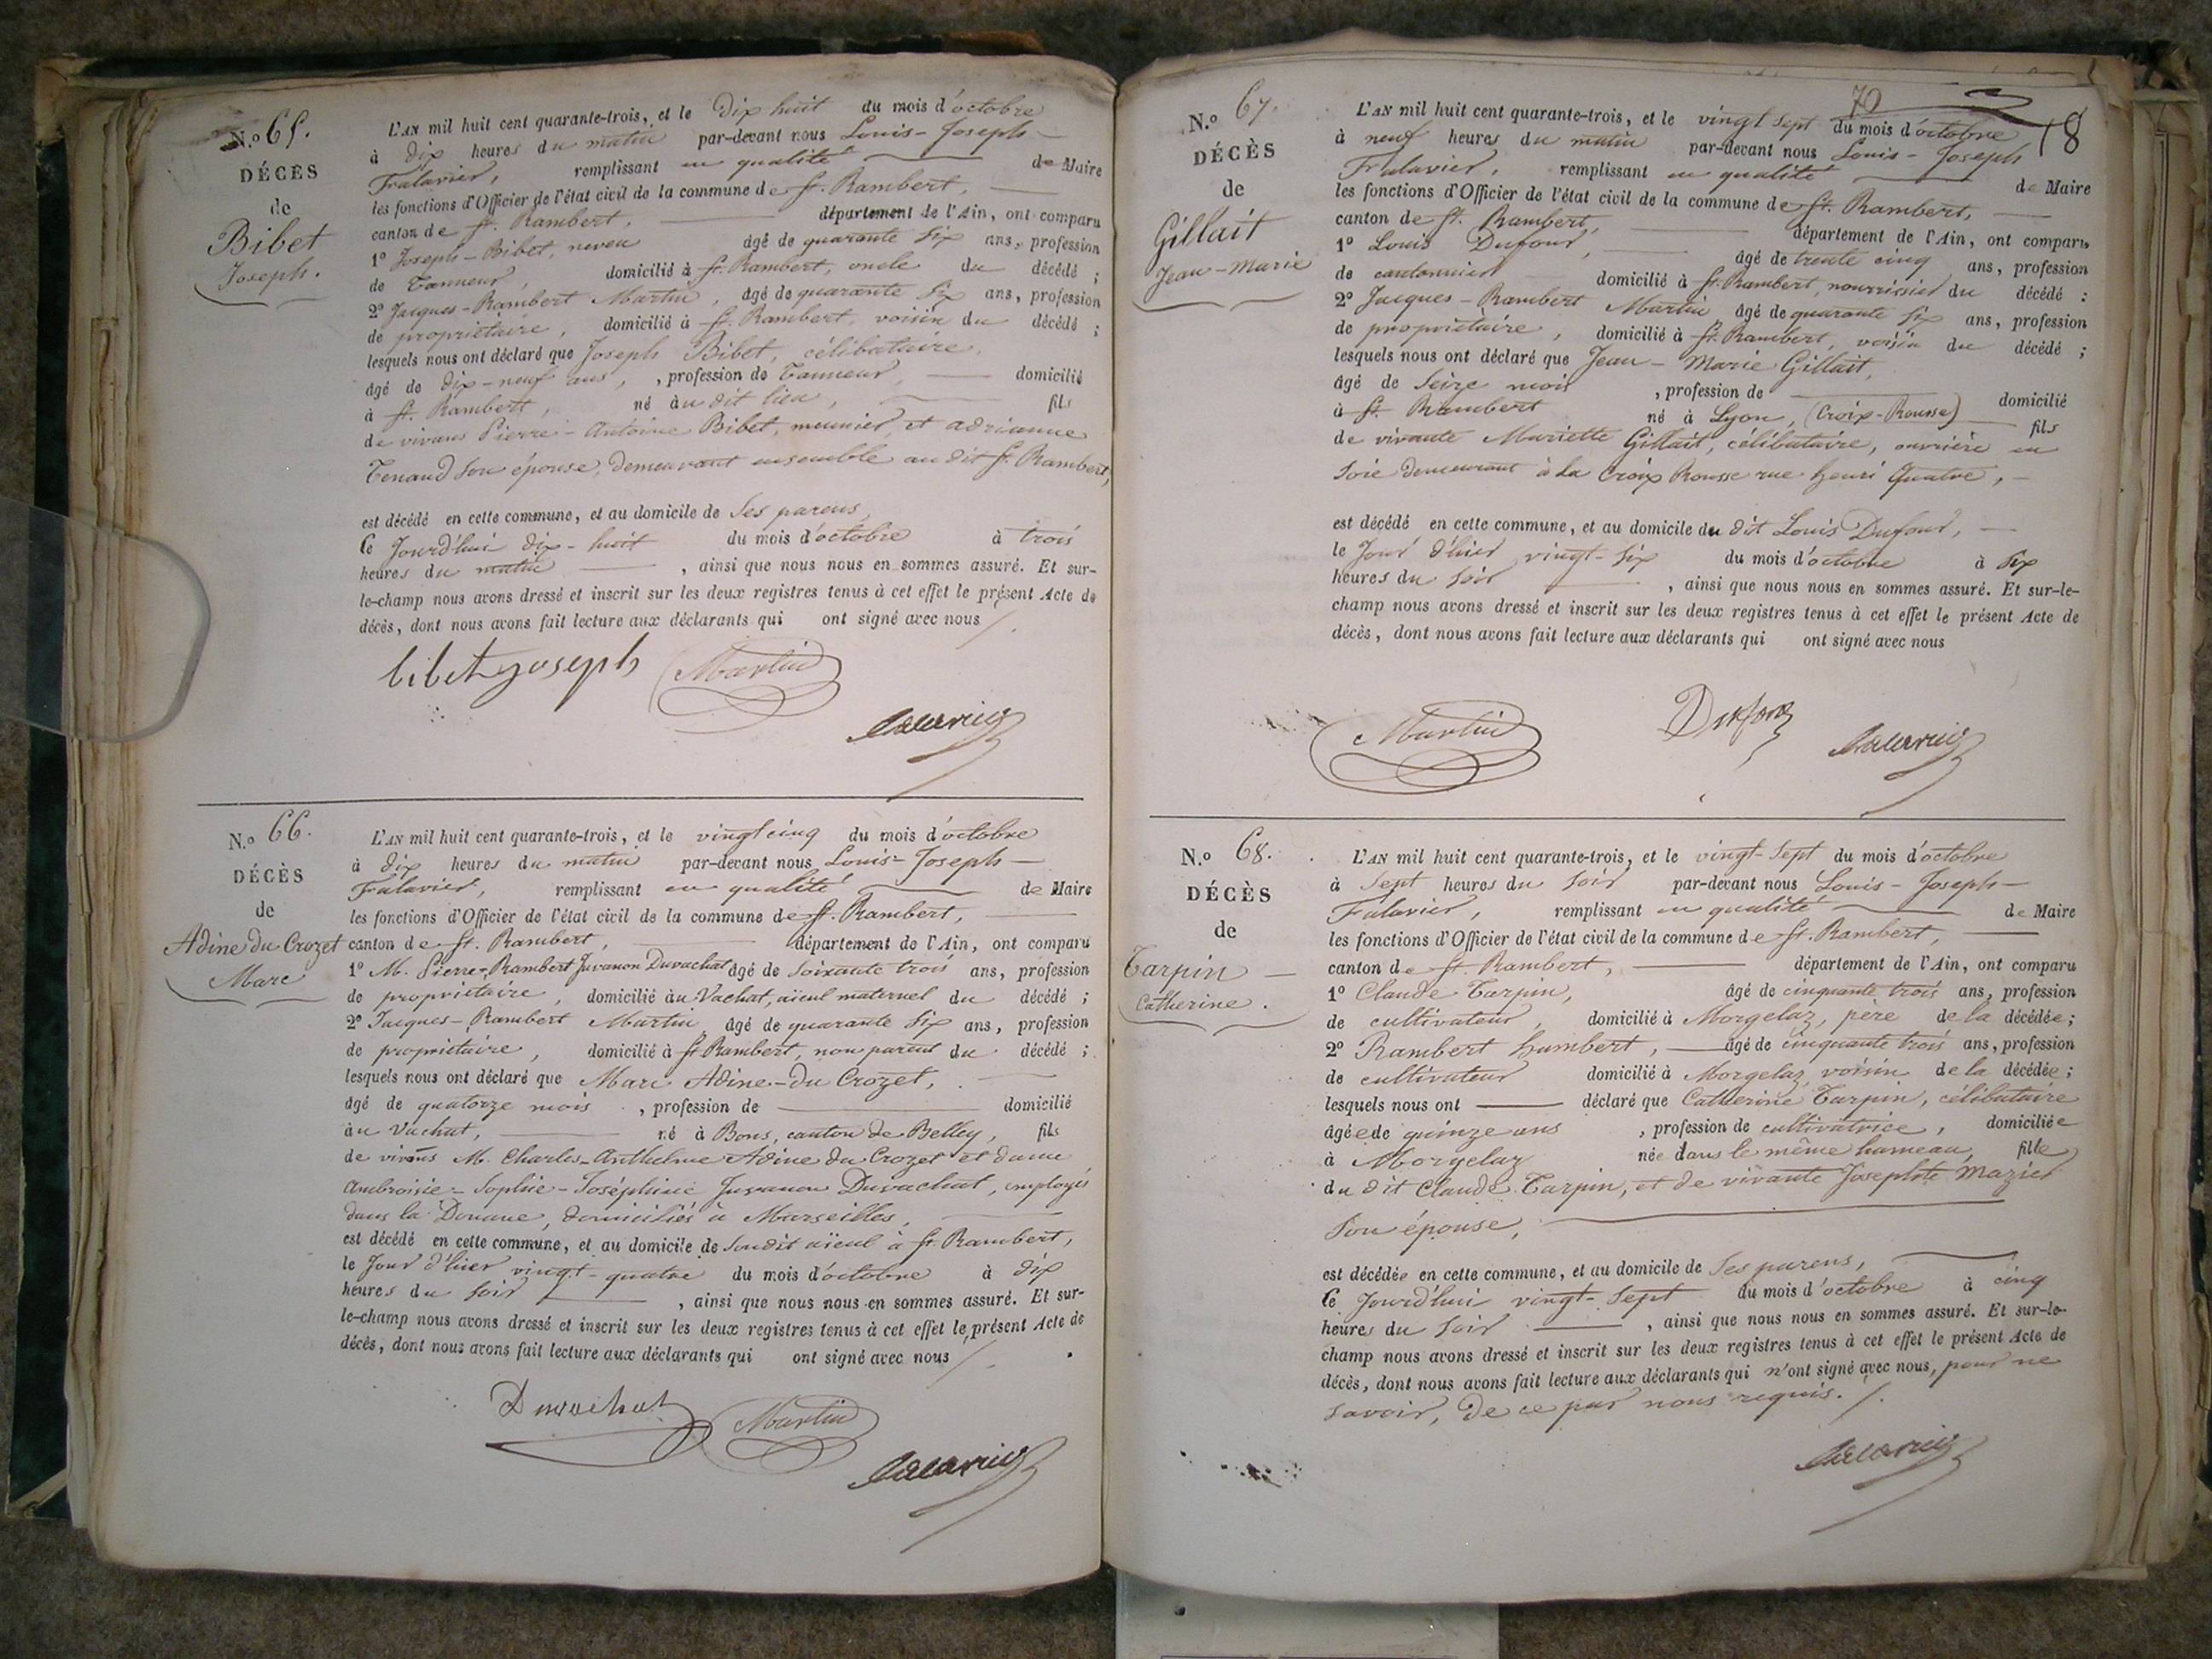 N.º 65.
DÉCÈS
de
Bibet
Joseph.
L'AN mil huit cent quarante-trois, et le dix huit du mois d'octobre
à dix heures du matin par-devant nous Louis-Joseph
Falavier, remplissant en qualité de Maire
les fonctions d'Officier de l'état civil de la commune de St. Rambert,
canton de St. Rambert, département de l'Ain, ont comparu
1º Joseph-Bibet, neveu âgé de quarante six ans, profession
de Tanneur, domicilié à St. Rambert, oncle du décédé ;
2º Jacques-Rambert Martin, âgé de quarante six ans, profession
de propriétaire, domicilié à St. Rambert, voisin du décédé ;
lesquels nous ont déclaré que Joseph Bibet, célibataire,
âgé de dix-neuf ans, , profession de Tanneur, domicilié
à St. Rambert, né au dit lieu, fils
de vivans Pierre-Antoine Bibet, meunier, et adrianne
Tenaud son épouse, demeurant ensemble au dit St. Rambert,
est décédé en cette commune, et au domicile de ses parens,
Ce Jourd'hui dix-huit du mois d'octobre à trois
heures du matin , ainsi que nous nous en sommes assuré. Et sur-
le-champ nous avons dressé et inscrit sur les deux registres tenus à cet effet le présent Acte de
décès, dont nous avons fait lecture aux déclarants qui ont signé avec nous /.
bibet joseph Martin
Falavier
N.º 66.
DÉCÈS
de
Adine du Crozet
Marc
L'AN mil huit cent quarante-trois, et le vingt cinq du mois d'octobre
à dix heures du matin par-devant nous Louis-Joseph
Falavier, remplissant en qualité de Maire
les fonctions d'Officier de l'état civil de la commune de St. Rambert,
canton de St. Rambert, département de l'Ain, ont comparu
1º M. Pierre-Rambert Juvanon Duvachat âgé de soixante trois ans, profession
de propriétaire, domicilié au Vachat, aïeul maternel du décédé ;
2º Jacques-Rambert Martin, âgé de quarante six ans, profession
de propriétaire, domicilié à St Rambert, non parent du décédé ;
lesquels nous ont déclaré que Marc Adine-du Crozet,
âgé de quatorze mois , profession de domicilié
au Vachat, né à Bons, canton de Belley, fils
de vivans M. Charles-Anthelme Adine du Crozet et dame
Ambroisie-Sophie-Joséphine Juvanon Duvachat, employés
dans la Douane, domiciliés à Marseilles,
est décédé en cette commune, et au domicile de son dit aïeul à St. Rambert,
le Jour d'hier vingt-quatre du mois d'octobre à dix
heures du soir , ainsi que nous nous en sommes assuré. Et sur-
le-champ nous avons dressé et inscrit sur les deux registres tenus à cet effet le présent Acte de
décès, dont nous avons fait lecture aux déclarants qui ont signé avec nous /.
Duvachat Martin
Falavier
70
78
N.º 67.
DÉCÈS
de
Gillait
Jean-Marie
L'AN mil huit cent quarante-trois, et le vingt sept du mois d'octobre
à neuf heures du matin par-devant nous Louis-Joseph
Falavier, remplissant en qualité de Maire
les fonctions d'Officier de l'état civil de la commune de St. Rambert,
canton de St. Rambert, département de l'Ain, ont comparu
1º Louis Dufour, âgé de trente cinq ans, profession
de cantonnier domicilié à St. Rambert, nourricier du décédé :
2º Jacques-Rambert Martin âgé de quarante six ans, profession
de propriétaire, domicilié à St. Rambert, voisin du décédé ;
lesquels nous ont déclaré que Jean-Marie Gillait,
âgé de seize mois , profession de domicilié
à St. Rambert né à Lyon, (Croix-Rousse) fils
de vivante Mariette Gillait, célibataire, ouvrière en
soie demeurant à la Croix Rousse rue henri Quatre,
est décédé en cette commune, et au domicile du dit Louis Dufour,
le Jour d'hier vingt-six du mois d'octobre à six
heures du soir , ainsi que nous nous en sommes assuré. Et sur-le-
champ nous avons dressé et inscrit sur les deux registres tenus à cet effet le présent Acte de
décès, dont nous avons fait lecture aux déclarants qui ont signé avec nous
Martin Dufour
Falavier
N.º 68.
DÉCÈS
de
Tarpin
Catherine.
L'AN mil huit cent quarante-trois, et le vingt-sept du mois d'octobre
à sept heures du soir par-devant nous Louis-Joseph
Falavier, remplissant en qualité de Maire
les fonctions d'Officier de l'état civil de la commune de St. Rambert,
canton de St. Rambert, département de l'Ain, ont comparu
1º Claude Tarpin, âgé de cinquante trois ans, profession
de cultivateur, domicilié à Morgelaz, père de la décédée ;
2º Rambert humbert, âgé de cinquante trois ans, profession
de cultivateur domicilié à Morgelaz, voisin de la décédée ;
lesquels nous ont déclaré que Catherine Tarpin, célibataire
âgée de quinze ans , profession de cultivatrice, domiciliée
à Morgelaz née dans le même hameau, fille
du dit Claude Tarpin, et de vivante Josephte Mazier
son épouse,
est décédée en cette commune, et au domicile de ses parens,
Ce Jourd'hui vingt-sept du mois d'octobre à cinq
heures du soir , ainsi que nous nous en sommes assuré. Et sur-le-
champ nous avons dressé et inscrit sur les deux registres tenus à cet effet le présent Acte de
décès, dont nous avons fait lecture aux déclarants qui n'ont signé avec nous, pour ne
savoir, de ce par nous requis. /.
Falavier